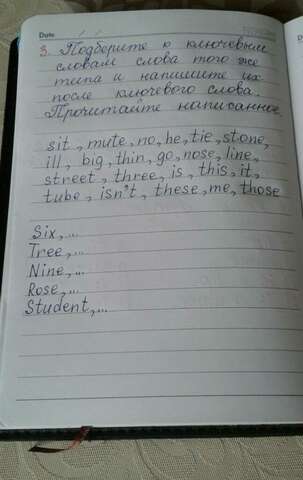 Date / /
3. Подберите к ключевым
словам слова того же
типа и напишите их
после ключевого слова.
Прочитайте написанное.
sit, mute, no, he, tie, stone,
ill, big, thin, go, nose, line,
street, three, is, this, it,
tube, isn't, these, me, those
Six,...
Tree,...
Nine,...
Rose,...
Student,...